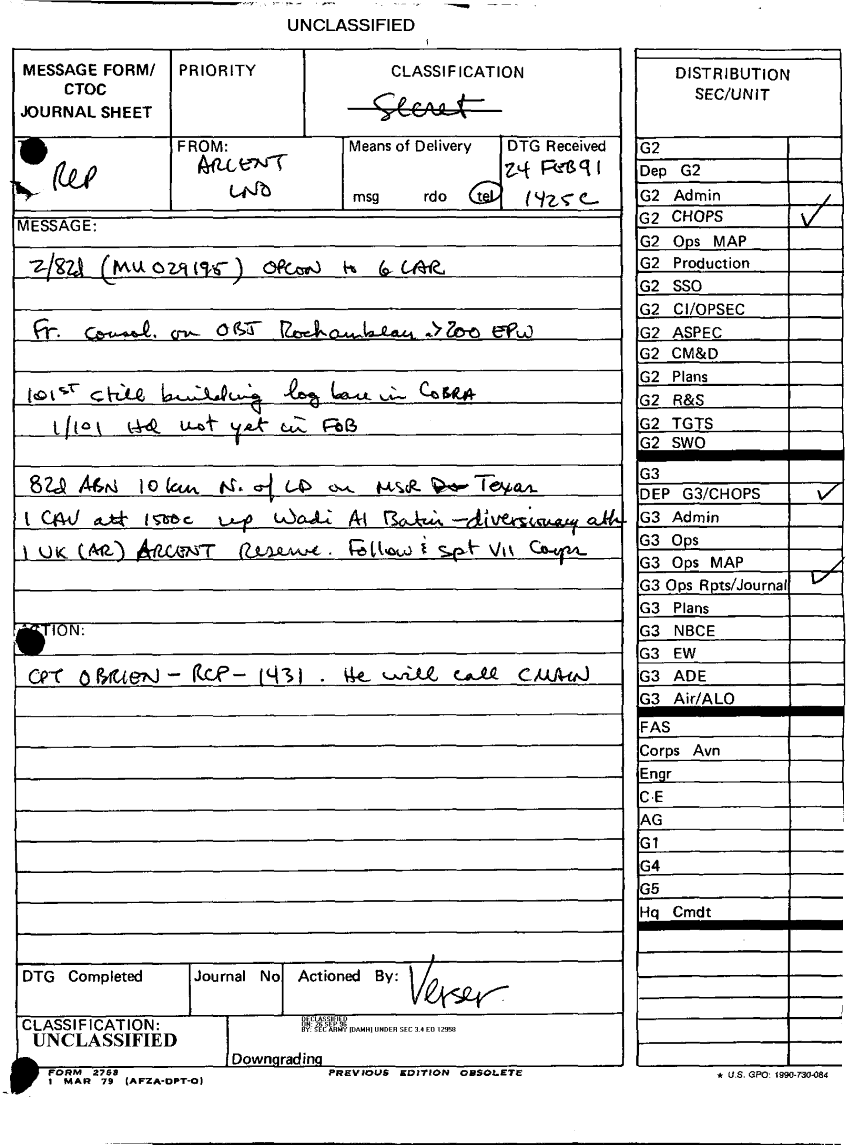 UNCLASSIFIED
MESSAGE FORM/
CTOC
JOURNAL SHEET
PRIORITY
CLASSIFICATION
Secret
RCP
FROM:
ARCENT
LNO
Means of Delivery
msg rdo tel
DTG Received
24 FEB 91
1425C
MESSAGE:
2/82d (MU 029195) OPCON to 6 LAR
Fr. consol. on OBJ Rochambeau >200 EPW
101ST still building log base in COBRA
1/101 Hq not yet in FOB
82d ABN 10 km N. of LD on MSR Texas
1 CAV att 1500c up Wadi Al Batin - diversionary atk
1 UK (AR) ARCENT Reserve. Follow & spt VII Corps
ACTION:
CPT OBRIEN - RCP - 1431. He will call CMAIN
DTG Completed
Journal No
Actioned By:
Verser
CLASSIFICATION:
UNCLASSIFIED
DECLASSIFIED
ON: 26 SEP 96
BY: SEC ARMY (DAMH) UNDER SEC 3.4 EO 12958
Downgrading
FORM 2758
1 MAR 79 (AFZA-DPT-O)
PREVIOUS EDITION OBSOLETE
DISTRIBUTION
SEC/UNIT
G2
Dep G2
G2 Admin
G2 CHOPS
G2 Ops MAP
G2 Production
G2 SSO
G2 CI/OPSEC
G2 ASPEC
G2 CM&D
G2 Plans
G2 R&S
G2 TGTS
G2 SWO
G3
DEP G3/CHOPS
G3 Admin
G3 Ops
G3 Ops MAP
G3 Ops Rpts/Journal
G3 Plans
G3 NBCE
G3 EW
G3 ADE
G3 Air/ALO
FAS
Corps Avn
Engr
C-E
AG
G1
G4
G5
Hq Cmdt
★ U.S. GPO: 1990-730-084